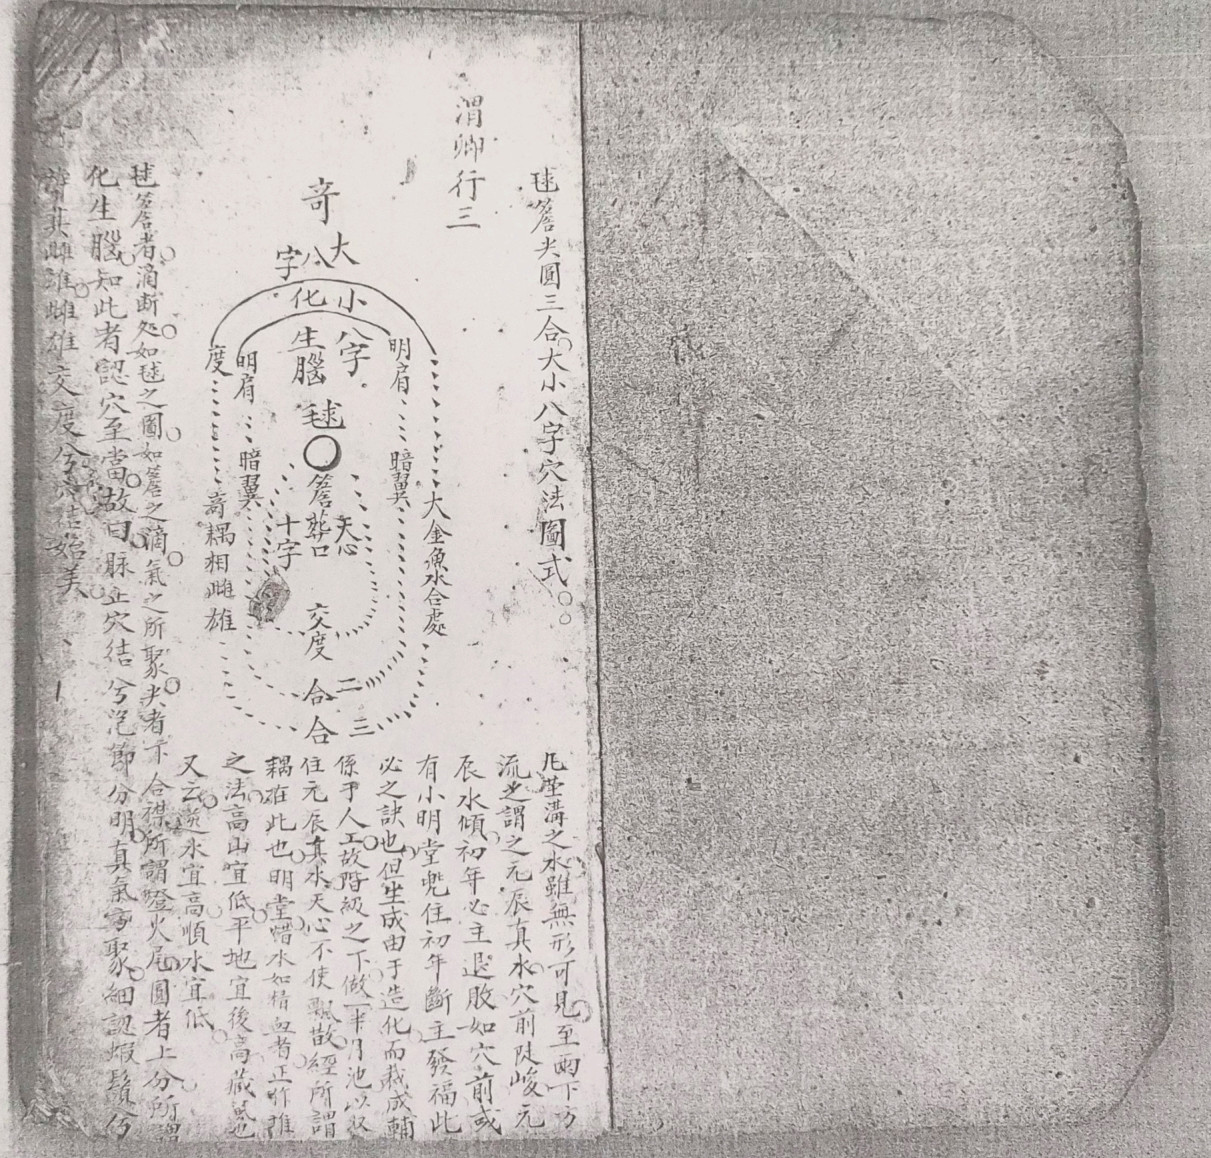 毬簷尖圓三合大小八字穴法圖式
渭卿行三
奇
大八字
小八字
化生腦
毬
簷葬口
天心
十字
交度
二合
三合
明肩
暗翼
大金魚水合處
明肩
暗翼
度
奇耦相雌雄
凡溝之水雖無形可見至雨下方
流之謂之元辰真水穴前陡峻元
辰水傾初年必主退敗如穴前或
有小明堂兜住初年斷主發福此
必之訣也但生成由于造化而裁成輔
係乎人工故階級之下做一半月池以收
住元辰真水天心不使飄散經所謂
耦在此也明堂惜水如惜血者正所謂
之法高山宜低平地宜後高藏風也
又云逆水宜高順水宜低
毬簷者滴斷処如毬之圓如簷之滴氣之所聚尖者下合襟所謂燈火尾圓者上分所謂
化生腦知此者認穴至當故曰脉止穴结兮泡節分明真氣聚細認蝦鬚兮
其雌雄雌雄交度兮穴结始美